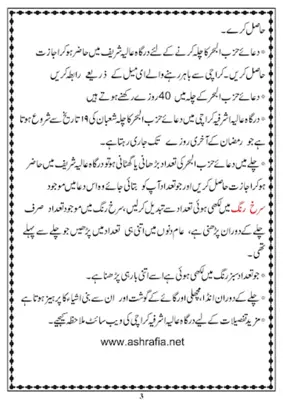 حاصل کرے۔
• دعائے حزب البحر کا چلہ کرنے کے لئے درگاہ عالیہ شریف میں حاضر ہو کر اجازت
حاصل کریں۔ کراچی سے باہر رہنے والے ای میل کے ذریعے رابطہ کریں
• دعائے حزب البحر کے چلہ میں 40 روزے رکھنے ہوتے ہیں
• درگاہ عالیہ اشرفیہ کراچی میں دعائے حزب البحر کا چلہ شعبان کی ۱۹ تاریخ سے شروع ہوتا
ہے جو رمضان کے آخری روزے تک جاری رہتا ہے۔
• چلے میں دعائے حزب البحر کی تعداد بڑھانی یا گھٹانی ہو تو درگاہ عالیہ شریف میں حاضر
ہو کر اجازت حاصل کریں اور جو تعداد آپ کو بتائی جائے وہ اس دعا میں موجود
سرخ رنگ میں لکھی ہوئی تعداد سے تبدیل کر لیں، سرخ رنگ میں موجود تعداد صرف
چلے کے دوران پڑھنی ہے، عام دنوں میں اتنی ہی تعداد میں پڑھیں جو چلے سے پہلے
تھی۔
• جو تعداد سبز رنگ میں لکھی ہوئی ہے اسے اتنی بار ہی پڑھنا ہے۔
• چلے کے دوران انڈا، مچھلی اور گائے کے گوشت اور ان سے بنی اشیاء کا پرہیز ہوتا ہے
• مزید تفصیلات کے لیے درگاہ عالیہ اشرفیہ کراچی کی ویب سائٹ ملاحظہ کیجیے۔
www.ashrafia.net
3